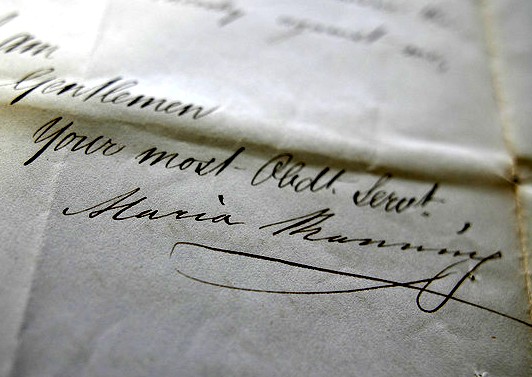 against me,
I am
Gentlemen
Your most Obdt. Servt.
Maria Manning